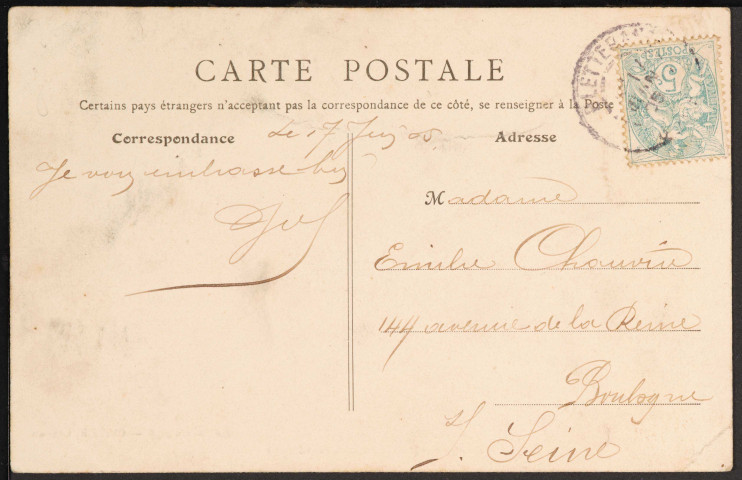 CARTE POSTALE
Certains pays étrangers n'acceptant pas la correspondance de ce côté, se renseigner à la Poste
Correspondance
Adresse
Le 17
Je vous embrasse bien
Madame
Emilie Chauvin
144 avenue de la Reine
Boulogne
s/ Seine
POSTES
5